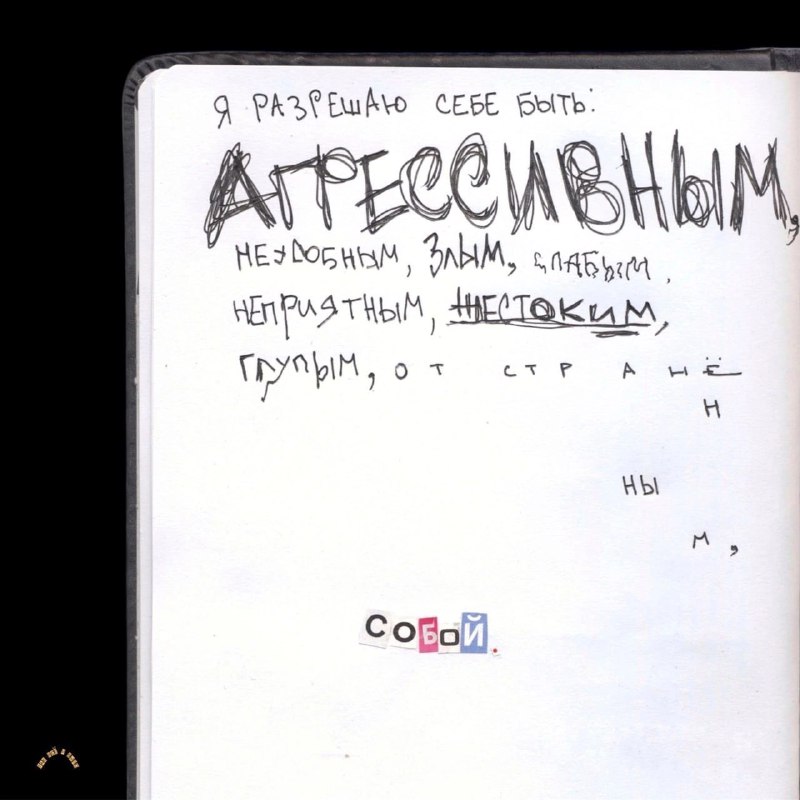 Я РАЗРЕШАЮ СЕБЕ БЫТЬ:
АГРЕССИВНЫМ,
НЕУДОБНЫМ, ЗЛЫМ, СЛАБЫМ,
НЕПРИЯТНЫМ, ЖЕСТОКИМ,
ГЛУПЫМ, ОТСТРАНЁ
Н
НЫ
М,
СОБОЙ.